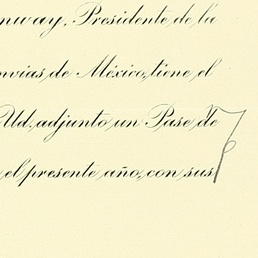 nway, Presidente de la
nvías de México, tiene el
Ud. adjunto un Pase de
el presente año, con sus